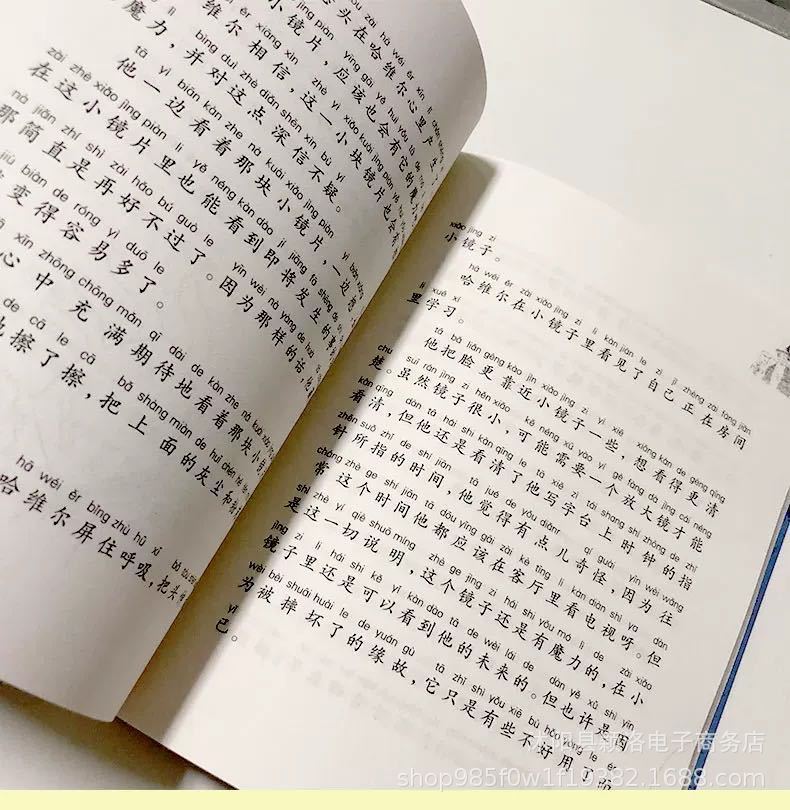 头在哈维尔心里产生
小镜片，应该也会有它的魔
维尔相信，这一小块镜片也会有
魔力，并对这点深信不疑。
tā yì biān kàn zhe nà kuài xiǎo jìng piàn
他一边看着那块小镜片，一边
zài zhè xiǎo jìng piàn lǐ yě néng kàn dào jí jiāng fā shēng de
在这小镜片里也能看到即将发生的
nà jiǎn zhí shì zài hǎo bú guò le yīn wèi nà yàng de huà
那简直是再好不过了。因为那样的话，
jiù biàn de róng yì duō le
变得容易多了。
xīn zhōng chōng mǎn qī dài de kàn zhe nà kuài
心中充满期待地看着那块小
de cā le cā bǎ shàng miàn de huī chén
地擦了擦，把上面的灰尘
hā wéi ěr bǐng zhù hū xī bǎ
哈维尔屏住呼吸，把头
xiǎo jìng zi
小镜子。
hā wéi ěr zài xiǎo jìng zi lǐ kàn jiàn le zì jǐ zhèng zài fáng jiān
哈维尔在小镜子里看见了自己正在房间
lǐ xué xí
里学习。
tā bǎ liǎn gèng kào jìn xiǎo jìng zi yì xiē xiǎng kàn de gèng qīng
他把脸更靠近小镜子一些，想看得更清
chu suī rán jìng zi hěn xiǎo kě néng xū yào yí gè fàng dà jìng cái néng
楚。虽然镜子很小，可能需要一个放大镜才能
kàn qīng dàn tā hái shi kàn qīng le tā xiě zì tái shang shí zhōng de zhǐ
看清，但他还是看清了他写字台上时钟的指
zhēn suǒ zhǐ de shí jiān tā jué de yǒu diǎnr qí guài yīn wèi wǎng
针所指的时间，他觉得有点儿奇怪，因为往
cháng zhè ge shí jiān tā dōu yīng gāi zài kè tīng lǐ kàn diàn shì ya dàn
常这个时间他都应该在客厅里看电视呀。但
shì zhè yí qiè shuō míng zhè ge jìng zi hái shi yǒu mó lì de zài xiǎo
是这一切说明，这个镜子还是有魔力的，在小
jìng zi lǐ hái shi kě yǐ kàn dào tā de wèi lái de dàn yě xǔ shì yīn
镜子里还是可以看到他的未来的。但也许是因
wèi bèi shuāi huài le de yuán gù tā zhǐ shì yǒu xiē bù hǎo yòng le ér
为被摔坏了的缘故，它只是有些不好用了而
yǐ
已。
沭阳县颖洛电子商务店
shop985f0w1f19382.1688.com